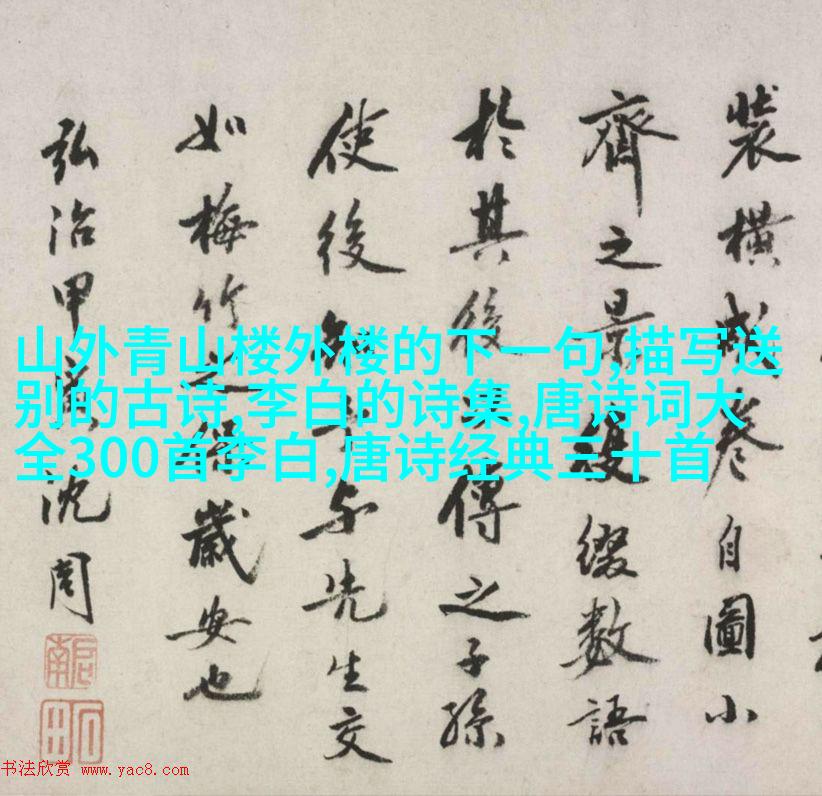 裝橫成卷自圖小
齊之景復綴數語
於其後傳之子孫
使後知与先生交
如梅竹之歲安也
弘治甲寅沈周
山外青山楼外楼的下一句,描写送
别的古诗,李白的诗集,唐诗词大
全300首李白,唐诗经典三十首
书法欣赏 www.yac8.com